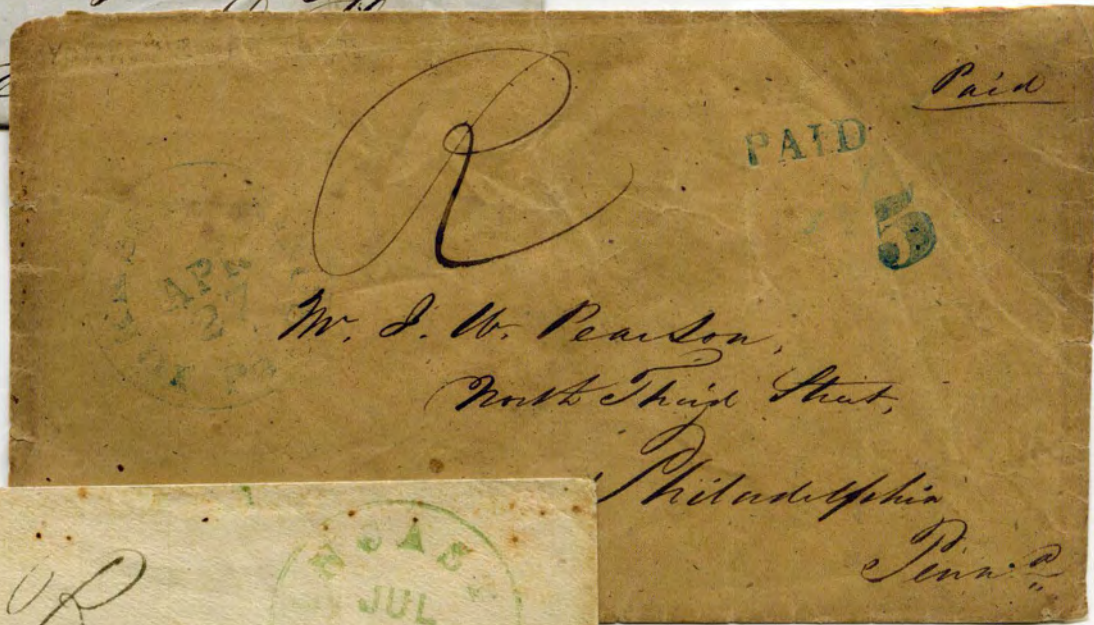 Paid
R
PAID
5
APR
27
Mr. J. W. Pearson,
North Third Street,
Philadelphia
Penn.a
R
JUL